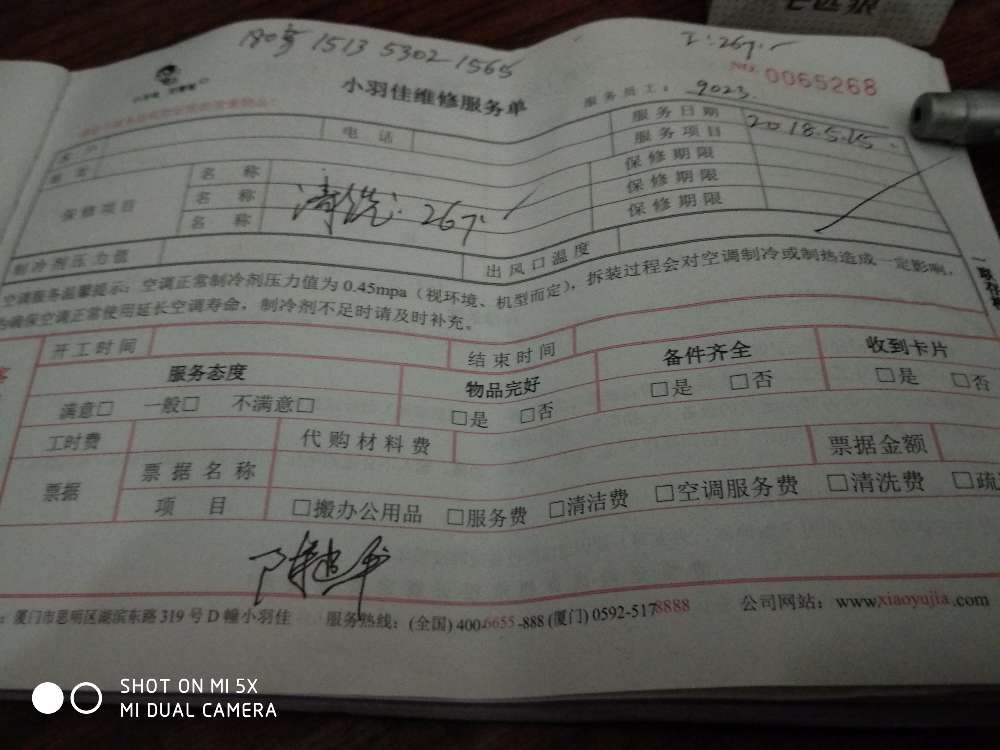 1513 5302 1565
267.
小羽佳维修服务单
NO. 0065268
服务员工： 9023
客户 电话 服务日期 2018.5.15
地址 服务项目
保修项目 名称 保修期限
名称 清洗. 267. 保修期限
名称 保修期限
制冷剂压力值 出风口温度
空调服务温馨提示：空调正常制冷剂压力值为 0.45mpa（视环境、机型而定），拆装过程会对空调制冷或制热造成一定影响，
确保空调正常使用延长空调寿命，制冷剂不足时请及时补充。
开工时间 结束时间
服务态度 物品完好 备件齐全 收到卡片
满意□ 一般□ 不满意□ □是 □否 □是 □否 □是 □否
工时费 代购材料费 票据金额
票据 票据名称
项目 □搬办公用品 □服务费 □清洁费 □空调服务费 □清洗费 □疏
：厦门市思明区湖滨东路 319 号 D 幢小羽佳 服务热线：(全国) 400-6655-888 (厦门) 0592-5178888 公司网站：www.xiaoyujia.com
SHOT ON MI 5X
MI DUAL CAMERA